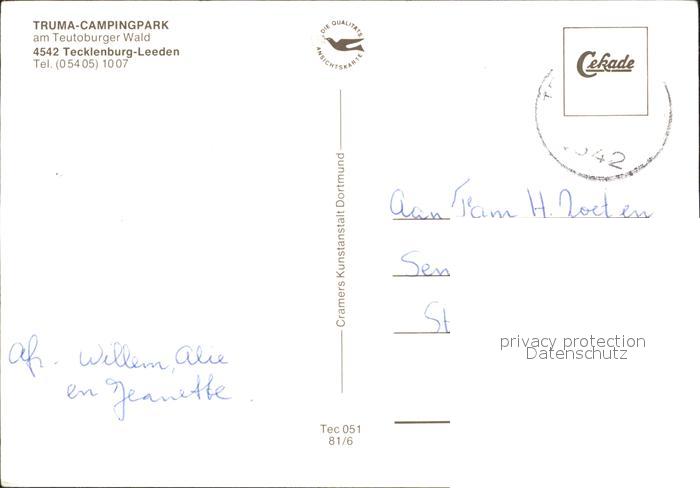 TRUMA-CAMPINGPARK
am Teutoburger Wald
4542 Tecklenburg-Leeden
Tel. (05405) 1007
DIE QUALITÄTS
ANSICHTSKARTE
Cekade
542
Cramers Kunstanstalt Dortmund
Aan Fam H. Zoeten
Sen
St
privacy protection
Datenschutz
Afz. Willem, Alie
en Jeanette.
Tec 051
81/6